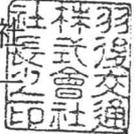 羽後交通
株式會社
社長之印
社